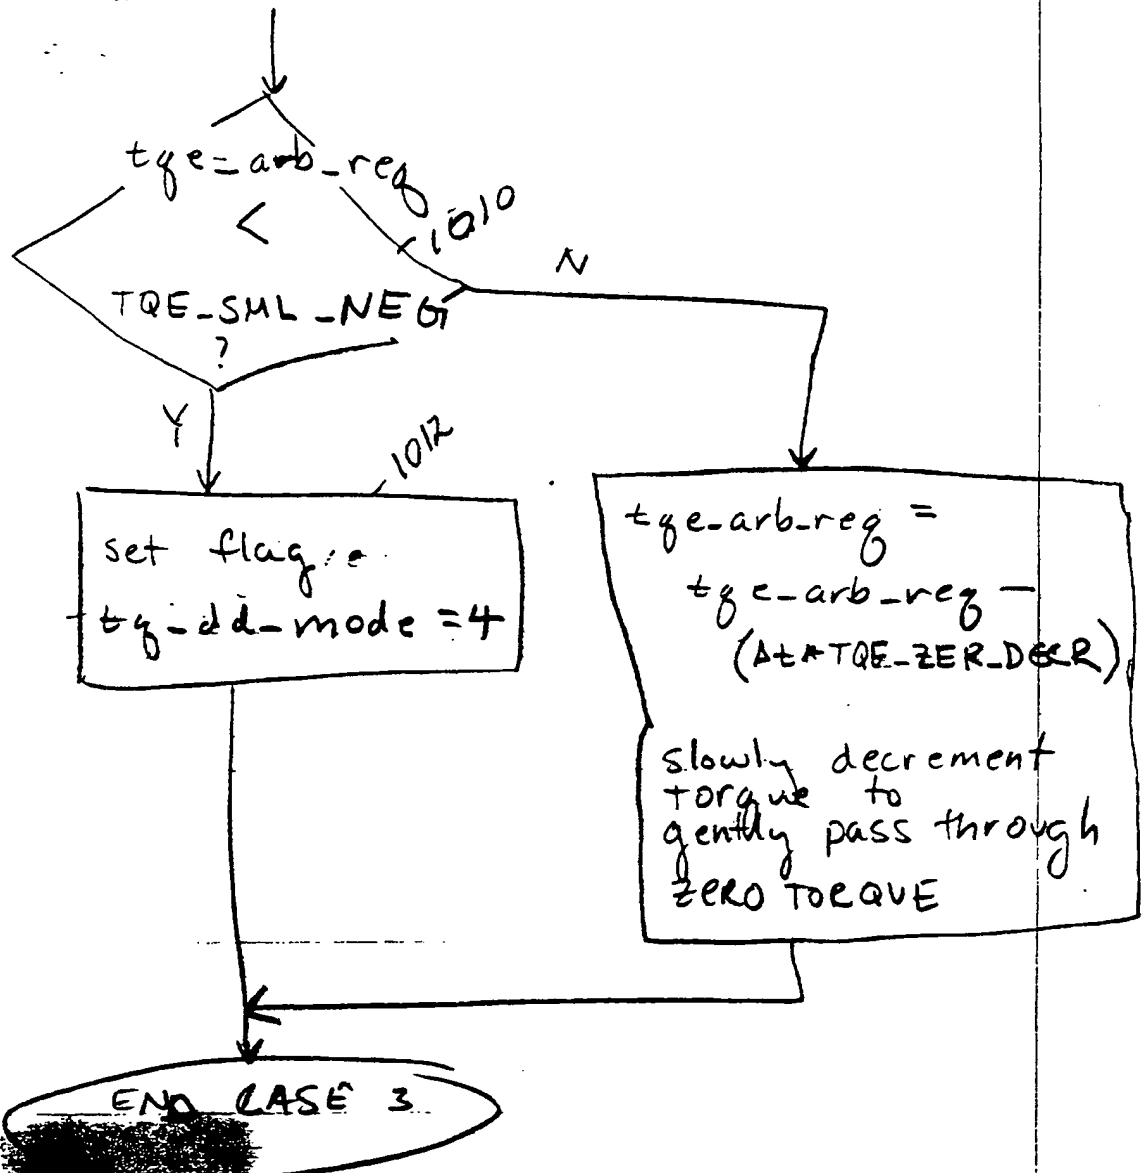 tqe_arb_req
<
1010
N
TQE_SML_NEG
?
Y
1012
set flag
tq_dd_mode = 4
tqe_arb_req =
tqe_arb_req —
(Δt*TQE_ZER_DECR)
slowly decrement
torque to
gently pass through
ZERO TORQUE
END CASE 3